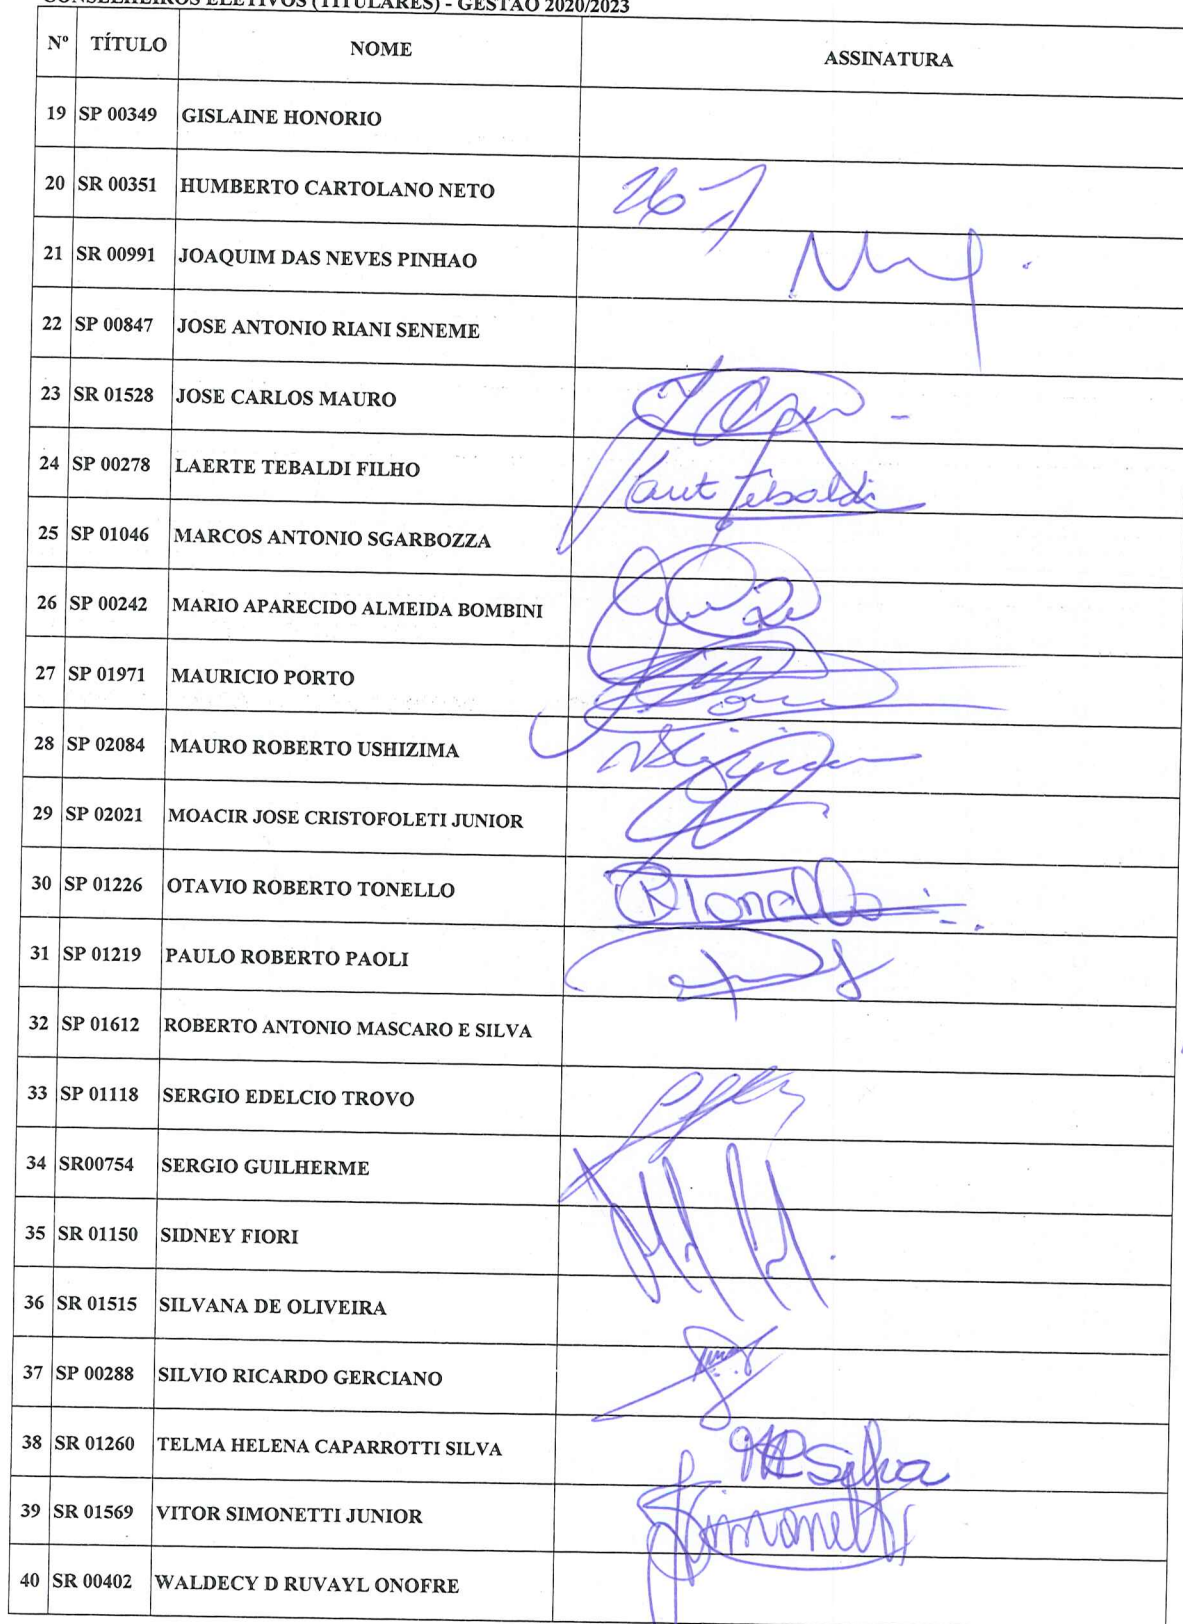 CONSELHEIROS ELETIVOS (TITULARES) - GESTÃO 2020/2023
Nº TÍTULO NOME ASSINATURA
19 SP 00349 GISLAINE HONORIO
20 SR 00351 HUMBERTO CARTOLANO NETO
21 SR 00991 JOAQUIM DAS NEVES PINHAO
22 SP 00847 JOSE ANTONIO RIANI SENEME
23 SR 01528 JOSE CARLOS MAURO
24 SP 00278 LAERTE TEBALDI FILHO Tebaldi
25 SP 01046 MARCOS ANTONIO SGARBOZZA
26 SP 00242 MARIO APARECIDO ALMEIDA BOMBINI
27 SP 01971 MAURICIO PORTO
28 SP 02084 MAURO ROBERTO USHIZIMA
29 SP 02021 MOACIR JOSE CRISTOFOLETI JUNIOR
30 SP 01226 OTAVIO ROBERTO TONELLO RTonello
31 SP 01219 PAULO ROBERTO PAOLI
32 SP 01612 ROBERTO ANTONIO MASCARO E SILVA
33 SP 01118 SERGIO EDELCIO TROVO
34 SR00754 SERGIO GUILHERME
35 SR 01150 SIDNEY FIORI
36 SR 01515 SILVANA DE OLIVEIRA
37 SP 00288 SILVIO RICARDO GERCIANO
38 SR 01260 TELMA HELENA CAPARROTTI SILVA Silva
39 SR 01569 VITOR SIMONETTI JUNIOR Simonetti
40 SR 00402 WALDECY D RUVAYL ONOFRE